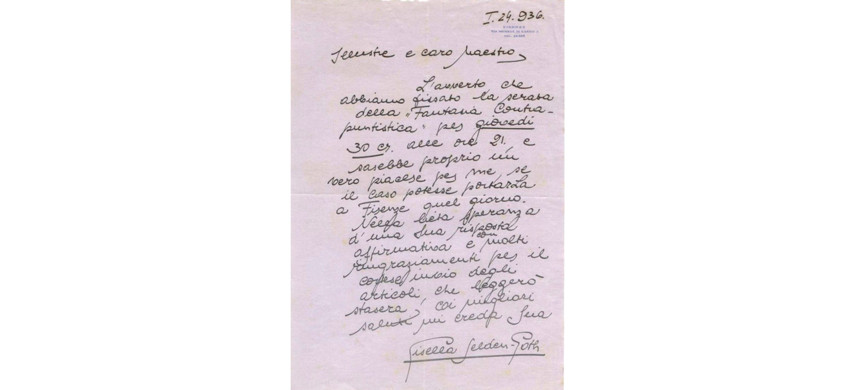 I. 24. 936.
FIRENZE
Illustre e caro Maestro,
L'avverto che
abbiamo fissato la serata
della "Fantasia Contra-
puntistica" per giovedì
30 cr. alle ore 21. e
sarebbe proprio un
vero piacere per me, se
il caso potesse portarLa
a Firenze quel giorno.
Nella lieta speranza
d'una Sua risposta
affirmativa e con molti
ringraziamenti per il
cortese invio degli
articoli, che leggerò
stasera, coi migliori
saluti mi creda Sua
Gisella Selden-Goth